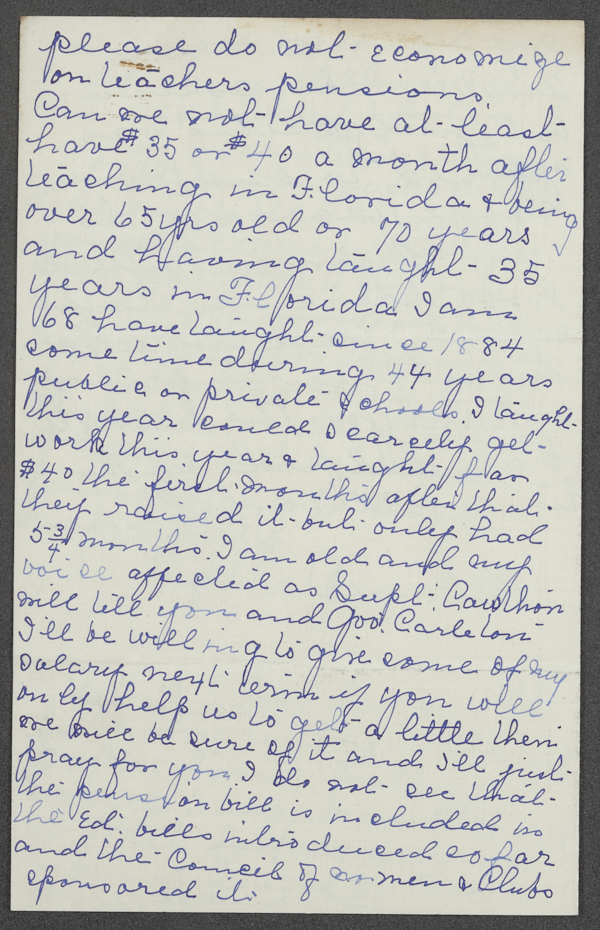 please do not economize
on teachers pensions.
Can we not have at least
have $35 or $40 a month after
teaching in Florida & being
over 65 yrs old or 70 years
and having taught 35
years in Florida I am
68 have taught since 1884
some time during 44 years
public or private schools. I taught
this year could scarcely get
work this year & taught for
$40 the first months after that
they raised it but only had
5 3/4 months. I am old and my
voice affected as Supt. Cawthon
will tell you and Gov. Carleton
I'll be willing to give some of my
salary next term if you will
only help us to get a little then
we will be sure of it and I'll just
pray for you. I do not see that
the pension bill is included in
the Ed. bills introduced so far
and the Council of women & Clubs
sponsored it